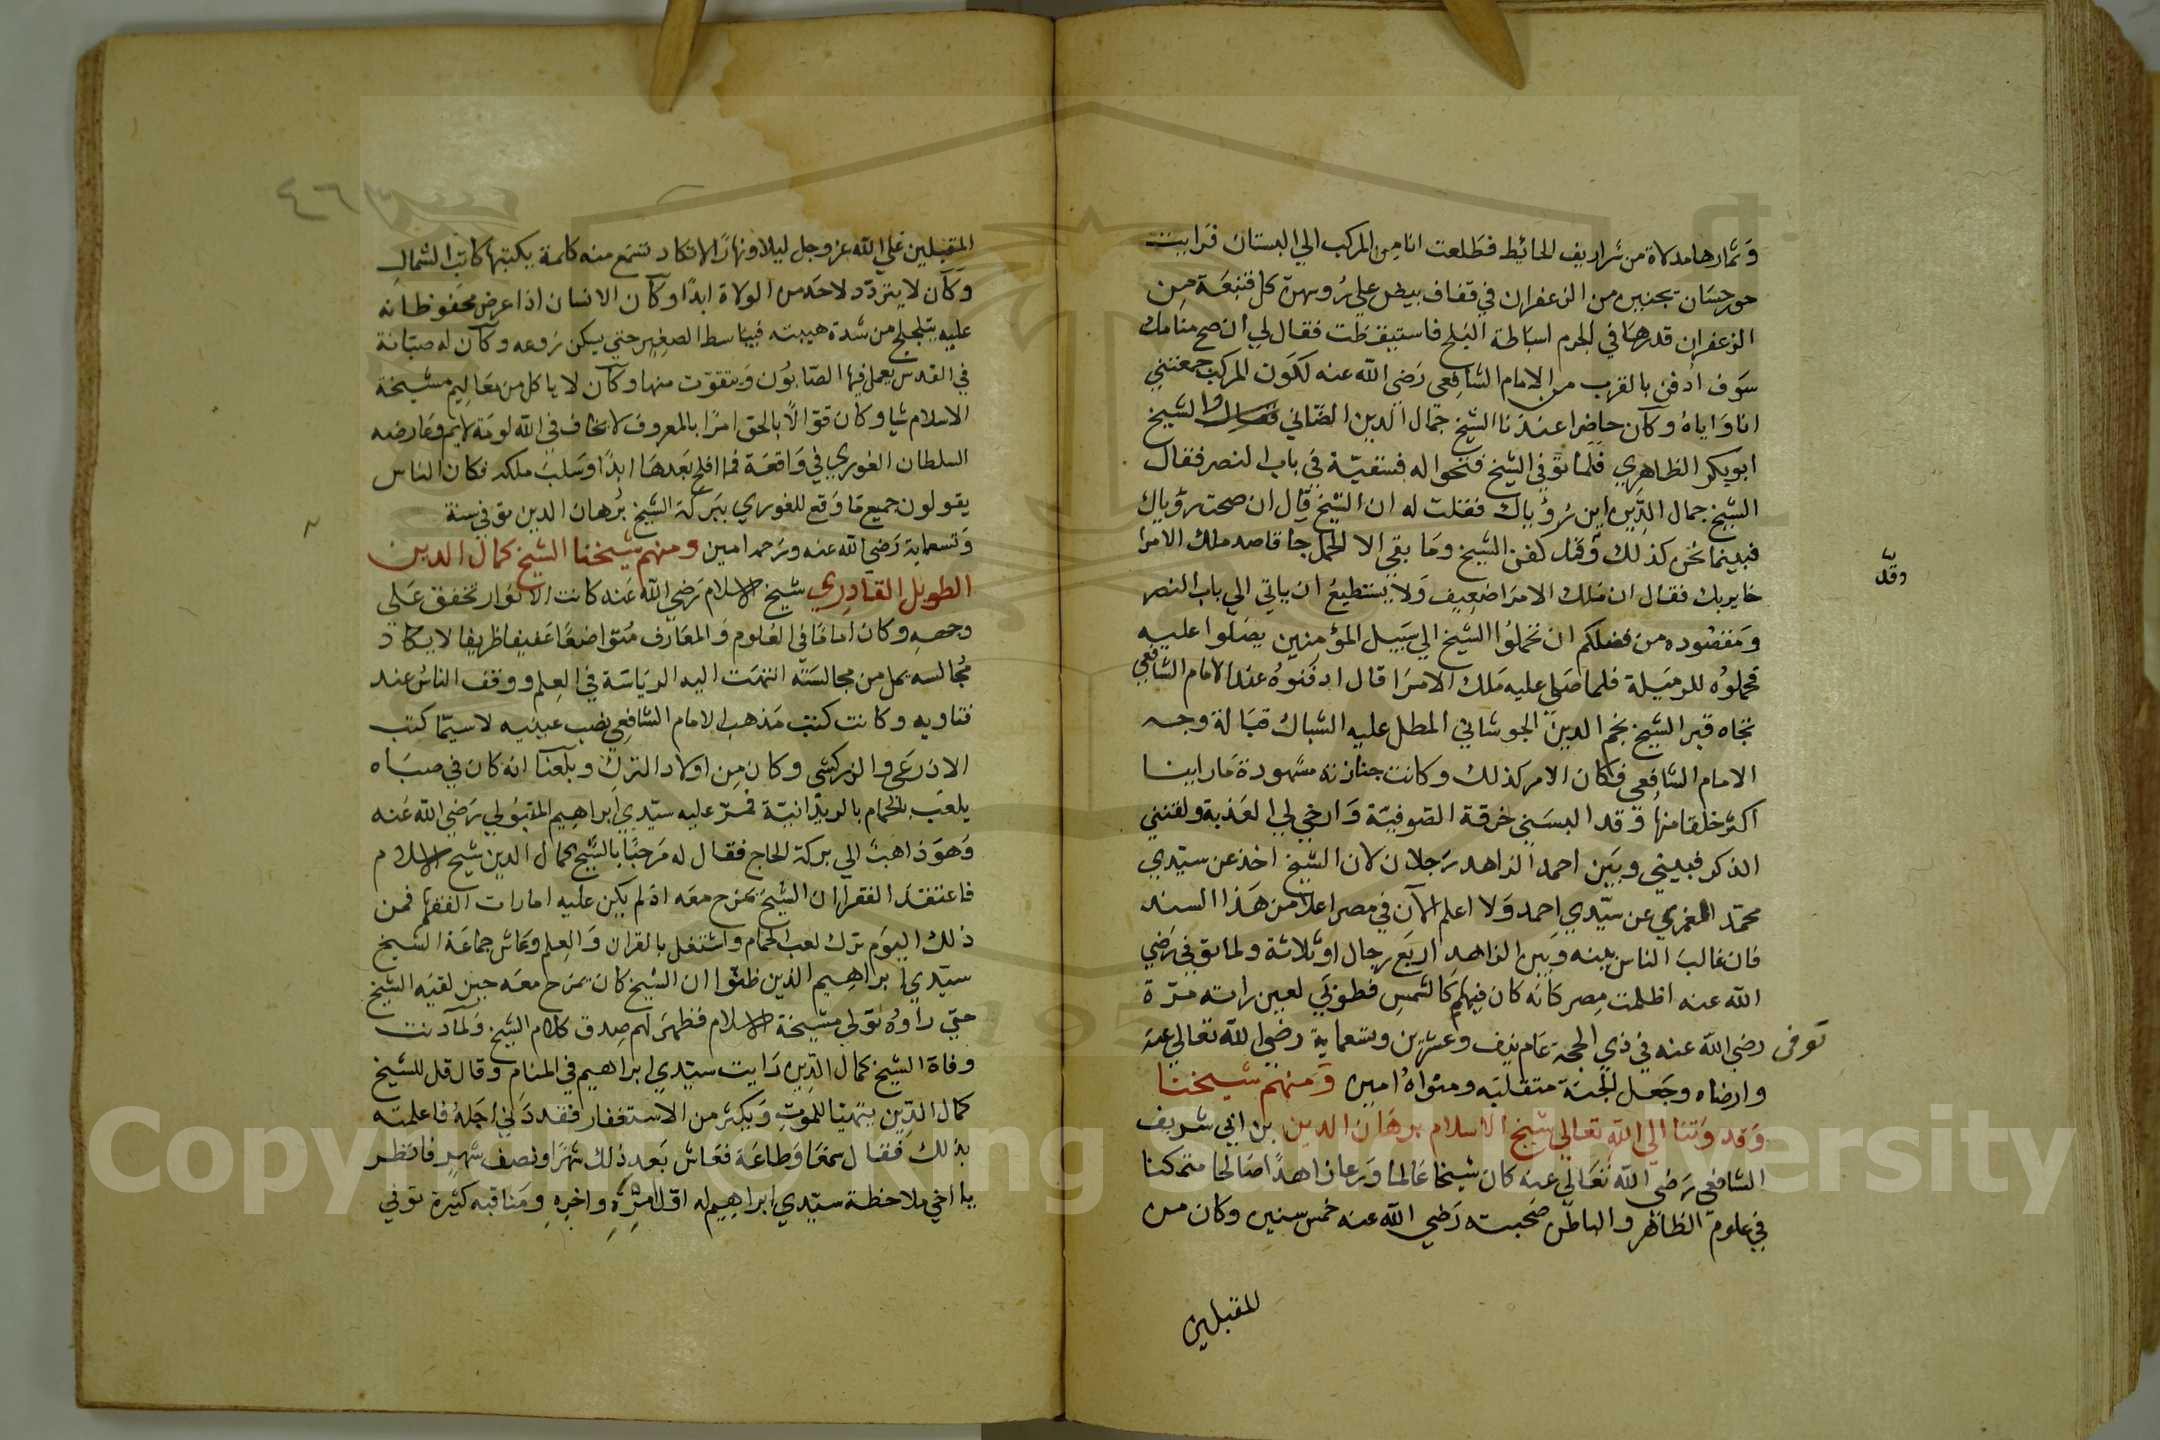 وثمارها مدلاة من شراريف الحائيط فطلعت انا من المركب الي البستان فرايت
حور حسان يجنين من الزعفران في قفاف بيض علي رؤسهن كل قنبعة من
الزعفران قدرها في الجرم اسباطة البلح فاستيقظت فقال لي ان صح منامك
سوف ادفن بالقرب من الامام الشافعي رضي الله عنه لكون المركب جمعتني
انا واياه وكان حاضرا عندنا الشيخ جمال الدين الصاني والشيخ
ابو بكر الظاهري فلما توفي الشيخ فتحوا له فسقية في باب النصر فقال
الشيخ جمال الدين اين رؤياك فقلت له ان الشيخ قال ان صحت رؤياك
فبينما نحن كذلك وقد كفن الشيخ وما بقي الا الحمل جا قاصد ملك الامرا
خاير بك فقال ان ملك الامرا ضعيف ولا يستطيع ان ياتي الي باب النصر
ومقصوده من فضلكم ان تحملوا الشيخ الي سبيل المؤمنين يصلوا عليه
فحملوه للرميلة فلما صلي عليه ملك الامرا قال ادفنوه عند الامام الشافعي
تجاه قبر الشيخ نجم الدين الجوشاني المطل عليه الشباك قبالة وجه
الامام الشافعي فكان الامر كذلك وكانت جنازته مشهودة ما راينا
اكثر خلقا منها وقد البسني خرقة الصوفية وارخي لي العذبة ولقنني
الذكر فبيني وبين احمد الزاهد رجلان لان الشيخ اخذ عن سيدي
محمد الغمري عن سيدي احمد ولا اعلم الآن في مصر اعلا من هذا السند
فان غالب الناس بينه وبين الزاهد اربع رجال او ثلاثة ولما توفي رضي
الله عنه اظلمت مصر كانه كان فيهم كالشمس فطوبي لعين راته مرة
توفى رضي الله عنه في ذي الحجة عام نيف وعشرين وتسعماية رضي الله تعالي عنه
وارضاه وجعل الجنة متقلبه ومثواه امين ومنهم شيخنا
وقدوتنا الي الله تعالي شيخ الاسلام برهان الدين بن ابي شريف
الشافعي رضي الله تعالي عنه كان شيخا عالما ورعا زاهدا صالحا متمكنا
في علوم الظاهر والباطن صحبته رضي الله عنه خمس سنين وكان من
المقبلين
وقد
المقبلين علي الله عز وجل ليلا ونهارا لا تكاد تسمع منه كلمة يكتبها كاتب الشمال
وكان لا يتردد لاحد من الولاة ابدا وكان الانسان اذا عرض محفوظاته
عليه يتلجلج من شدة هيبته فيباسط الصغير حتي يسكن روعه وكان له صبانة
في القدس يعمل فيها الصابون ويتقوت منها وكان لا ياكل من معاليم مشيخة
الاسلام شيا وكان قوالا بالحق امرا بالمعروف لا يخاف في الله لومة لايم وعارضه
السلطان الغوري في واقعة فما افلح بعدها ابدا وسلب ملكه فكان الناس
يقولون جميع ما وقع للغوري ببركة الشيخ برهان الدين توفي سنة
وتسعماية رضي الله عنه ورحمه امين ومنهم شيخنا الشيخ كمال الدين
الطويل القادري شيخ الاسلام رضي الله عنه كانت الانوار تخفق علي
وجهه وكان اماما في العلوم والمعارف متواضعا عفيفا ظريفا لا يكاد
مجالسه يمل من مجالسته انتهت اليه الرياسة في العلم ووقف الناس عند
فتاويه وكانت كتب مذهب الامام الشافعي نصب عينيه لاسيما كتب
الاذرعي والزركشي وكان من اولاد الترك وبلغنا انه كان في صباه
يلعب بالحمام بالريدانية فمر عليه سيدي ابراهيم المتبولي رضي الله عنه
وهو ذاهب الي بركة الحاج فقال له مرحبا بالشيخ كمال الدين شيخ الاسلام
فاعتقد الفقرا ان الشيخ يمزح معه اذ لم يكن عليه امارات الفقها فمن
ذلك اليوم ترك لعب الحمام واشتغل بالقران والعلم وعاش جماعة الشيخ
سيدي ابراهيم الذين ظنوا ان الشيخ كان يمزح معه حين لقيه الشيخ
حتي راوه تولي مشيخة الاسلام فظهر لهم صدق كلام الشيخ ولما دنت
وفاة الشيخ كمال الدين رايت سيدي ابراهيم في المنام وقال قل للشيخ
كمال الدين يتهيا للموت ويكثر من الاستغفار فقد دني اجله فاعلمته
بذلك فقال سمعا وطاعة فعاش بعد ذلك شهرا ونصف شهر فانظر
يا اخي ملاحظة سيدي ابراهيم له اول امره واخره ومناقبه كثيرة توفي
٤٦٣
Copyright © King Saud University